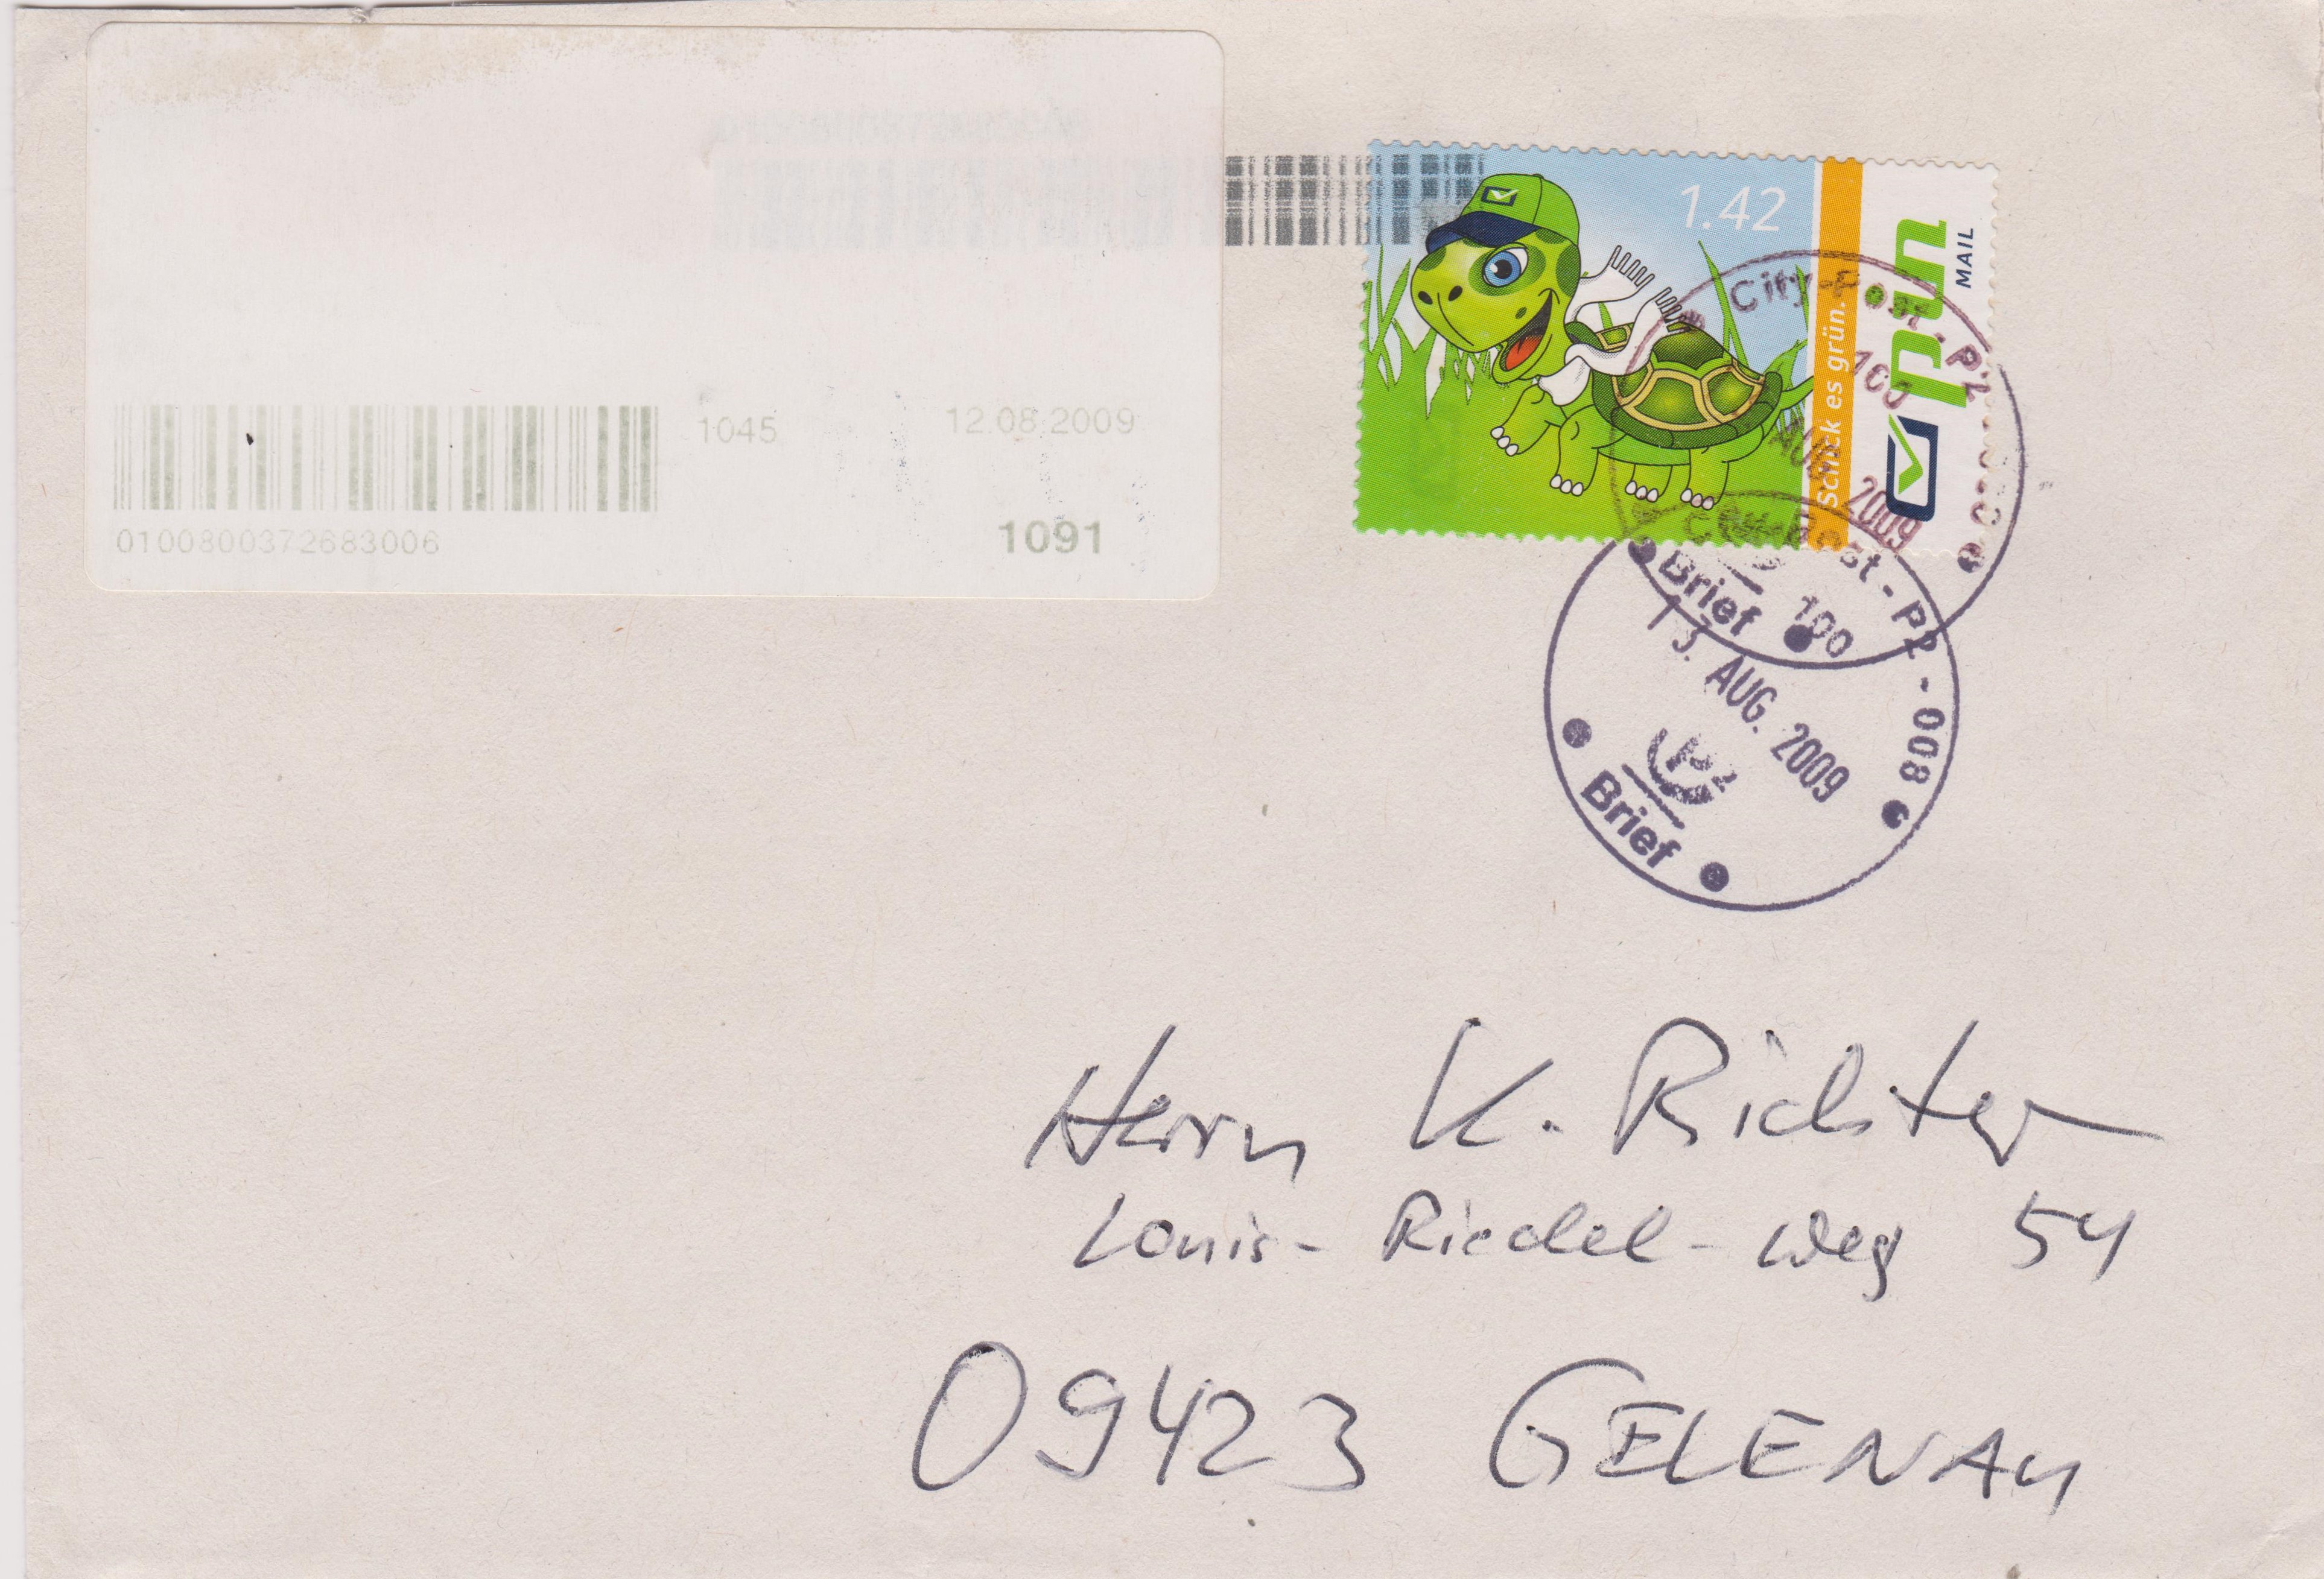 1045 12.08.2009
0100800372683006
1091
1.42
Schick es grün.
pin
MAIL
City-Post-P2
100
AUG. 2009
Brief
City-Post-P2-008
100
13. AUG. 2009
P2
Brief
Herrn K. Richter
Louis-Riedel-Weg 54
09423 GELENAU